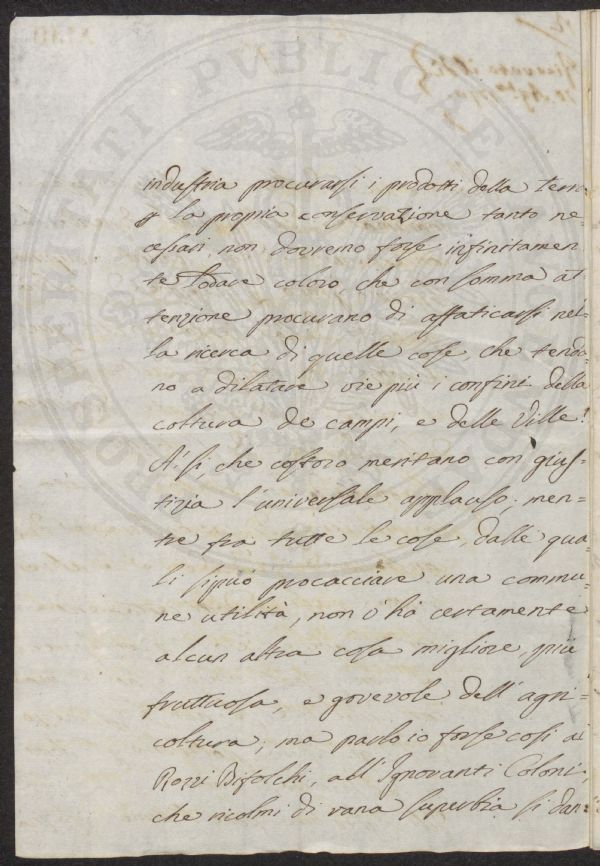 PROSPERITATI PVBLICAE
industria procurarsi i prodotti della terra
p la propria conservazione tanto ne=
cessari, non dovremo forse infinitamen
te lodare coloro che con somma at
tenzione procurano di affaticarsi nel=
la ricerca di quelle cose, che tendo=
no a dilatare vie più i confini della
coltura de campi, e delle Ville!
A' si, che costoro meritano con gius=
tizia l'universale applauso; men=
tre fra tutte le cose, dalle qua=
li si può procacciare una commu=
ne utilità, non v'hà certamente
alcun altra cosa migliore, più
fruttuosa, e govevole dell'agri=
coltura; ma parlo io forse così ai
Rozzi Bifolchi, all'Ignoranti Coloni,
che ricolmi di vana superbia si dan=